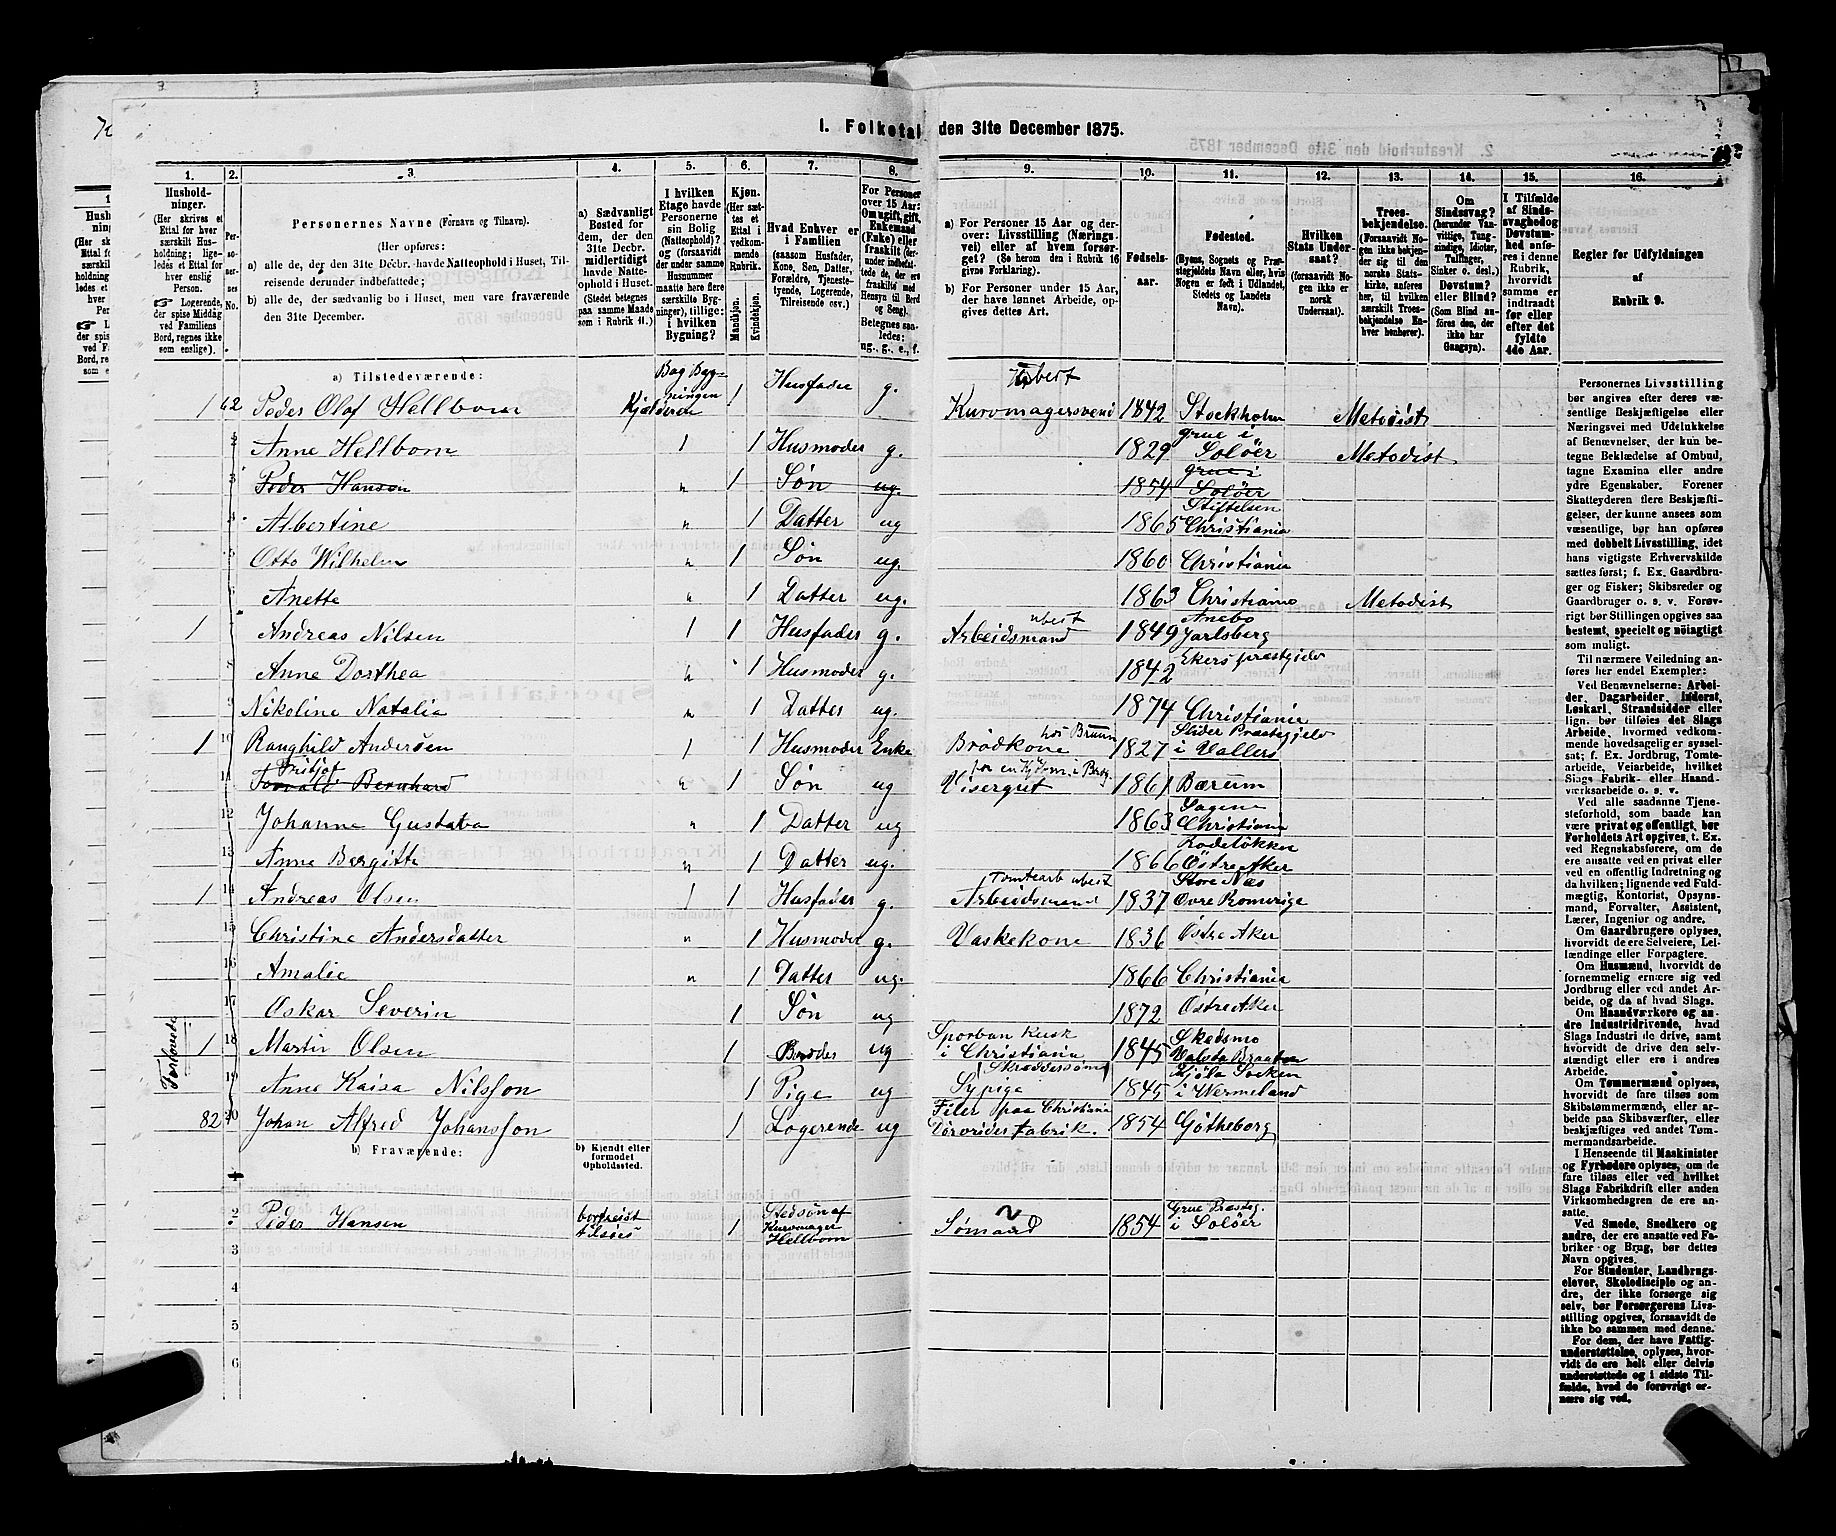 I. Folketal den 31te December 1875.
1. 2. 3. 4. 5. 6. 7. 8. 9. 10. 11. 12. 13. 14. 15. 16.
Husholdninger. (Her skrives et Ettal for hver særskilt Husholdning; ligeledes et Ettal for hver enslig Person. Logerende, der spise Middag ved Familiens Bord, regnes ikke som enslige).
Personernes No.
Personernes Navne (Fornavn og Tilnavn).
(Her opføres:
a) alle de, der den 31te Decbr. havde Natteophold i Huset, Tilreisende derunder indbefattede;
b) alle de, der sædvanlig bo i Huset, men vare fraværende den 31te December.
a) Sædvanligt Bosted for dem, der den 31te Decbr. midlertidigt havde Natteophold i Huset. (Stedet betegnes paa samme Maade som i Rubrik 11.)
I hvilken Etage havde Personerne sin Bolig (Natteophold)? og (forsaavidt der under samme Husnummer maatte høre flere særskilte Bygninger), tillige: i hvilken Bygning?
Kjøn. (Her sættes et Ettal i vedkommende Rubrik.
Mandkjøn. Kvindekjøn.
Hvad Enhver er i Familien (saasom Husfader, Kone, Søn, Datter, Forældre, Tjenestetyende, Logerende, Tilreisende osv.)
For Personer over 15 Aar: Om ugift, gift, Enkemand (Enke) eller fraskilt
Betegnes saaledes: ug., g., e., f.
a) For Personer 15 Aar og derover: Livsstilling (Næringsvei) eller af hvem forsørget? (Se herom den i Rubrik 16 givne Forklaring).
b) For Personer under 15 Aar, der have lønnet Arbeide, opgives dettes Art.
Fødselsaar.
Fødested. (Byens, Sognets og Præstegjeldets Navn eller, hvis Nogen er født i Udlandet, Stedets og Landets Navn).
Hvilken Stats Undersaat? (forsaavidt Nogen ikke er norsk Undersaat).
Troesbekjendelse. (Forsaavidt Nogen ikke bekjender sig til den norske Statskirke, anføres her, til hvilken særskilt Troesbekjendelse Enhver henhører).
Om Sindssvag? (herunder Vanvittige, Tungsindige, Idioter, Tullinger, Sinker o. desl.) Døvstum? eller Blind? (Som Blind anføres den, der ikke har Gangsyn).
I Tilfælde af Sindssvaghed og Døvstumhed anføres i denne Rubrik, hvorvidt samme er indtraadt før eller efter det fyldte 4de Aar.
Regler for Udfyldningen af Rubrik 9.
a) Tilstedeværende:
1 62 Peder Olaf Hellbom Bag Bygningen Kjelderen 1 Husfader g. Kurvmagersvend 1842 Stockholm Metodist
2 Anne Hellbom 1 1 Husmoder g. 1829 Grue i Soløer Metodist
3 Peder Hansen " 1 Søn ug. 1854 Grue i Soløer
4 Albertine " 1 Datter ug 1865 Stiftelsen Christiania
5 Otto Wilhelm " 1 Søn ug. 1860 Christiania
6 Anette " 1 Datter ug. 1863 Christiania Metodist
1 7 Andreas Nilsen 1 1 Husfader g. Arbeidsmand ubest 1849 Anebo Jarlsberg
8 Anne Dorthea " 1 Husmoder g. 1842 Ekers præstegjeld
9 Nikoline Natalia " 1 Datter ug. 1874 Christiania
1 10 Ranghild Andersen 1 1 Husmoder Enke Brødkone hos Bruun 1827 Slider Præstegjeld i Vallers
11 Fritjof Bernhard " 1 Søn ug Visergut 1861 Bærum
12 Johanne Gustava " 1 Datter ug 1863 Sagene Christiania
13 Anne Bergitte " 1 Datter ug. 1866 Rodeløkken Østre Aker
1 14 Andreas Olsen 1 1 Husfader g. Arbeidsmand Tomtearb ubest 1837 Store Næs Øvre Romerige
15 Christine Andersdatter " 1 Husmoder g. Vaskekone 1836 Østre Aker
16 Amalie " 1 Datter ug. 1866 Christiania
17 Oskar Severin 1 Søn ug 1872 Østre Aker
Forlovede
1 18 Martin Olsen 1 Broder ug Sporban Kusk i Christiania 1845 Skedsmo
19 Anne Kaisa Nilsson 1 Pige ug Sypige 1845 i Wermeland
82 20 Johan Alfred Johansson 1 Logerende ug Filer paa Christiania Dørvrider Fabrik. 1854 Gøtheborg
b) Fraværende: b) Kjendt eller formodet Opholdssted.
1
2 Peder Hansen bortreist tilsøes 1 Stedsøn af Kurvmager Hellbom Sømand 1854 Grue Præstg. i Soløer
3
4
5
6
Personernes Livsstilling bør angives efter deres væsentlige Beskjæftigelse eller Næringsvei med Udelukkelse af Benævnelser, der kun betegne Beklædelse af Ombud, tagne Examina eller andre ydre Egenskaber. Forener Skatteyderen flere Beskjæftigelser, der kunne ansees som væsentlige, bør han opføres med dobbelt Livsstilling, idet hans vigtigste Erhvervskilde sættes først; f. Ex. Gaardbruger og Fisker; Skibsreder og Gaardbruger o. s. v. Forøvrigt bør Stillingen opgives saa bestemt, specielt og nøiagtigt som muligt.
Til nærmere Veiledning anføres her endel Exempler:
Ved Benævnelserne: Arbeider, Dagarbeider, Inderst, Løskarl, Strandsidder eller lign. bør tilføies det Slags Arbeide, hvormed vedkommende hovedsagelig er sysselsat; f. Ex. Jordbrug, Tomtearbeide, Veiarbeide, hvilket Slags Fabrik- eller Haandværksarbeide o. s. v.
Ved alle saadanne Tjenesteforhold, som baade kan være privat og offentligt, bør Forholdets Art opgives, t. Ex. ved Regnskabsførere, om de ere ansatte ved en privat eller ved en offentlig Indretning og da hvilken; lignende ved Fuldmægtig, Kontorist, Opsynsmand, Forvalter, Assistent, Lærer, Ingeniør og andre.
Om Gaardbrugere oplyses, hvorvidt de ere Selveiere, Leilændinge eller Forpagtere.
Om Husmænd, hvorvidt de fornemmelig ernære sig ved Jordbrug eller ved andet Arbeide, og da af hvad Slags.
Om Haandværkere og andre Industridrivende, hvad Slags Industri de drive, samt hvorvidt de drive den selvstændigt eller ere i andres Arbeide.
Om Tømmermænd oplyses, hvorvidt de fare tilsøs som Skibstømmermænd, eller arbeide paa Skibsværfter, eller beskjæftiges ved andet Tømmermandsarbeide.
I Henseende til Maskinister og Fyrbødere oplyses, om de fare tilsøs eller ved hvilket Slags Fabrikdrift eller anden Virksomhedsgren de ere ansatte.
Ved Smede, Snedkere og andre, der ere ansatte ved Fabriker og Brug, bør dettes Navn opgives.
For Studenter, Landbrugselever, Skoledisciple og andre, der ikke forsørge sig selv, bør Forsørgerens Livsstilling opgives, forsaavidt de ikke bo sammen med denne.
For dem, der have Fattigunderstøttelse, oplyses, hvorvidt de ere helt eller delvis understøttede og i sidste Tilfælde, hvad de forøvrigt ernære sig ved.